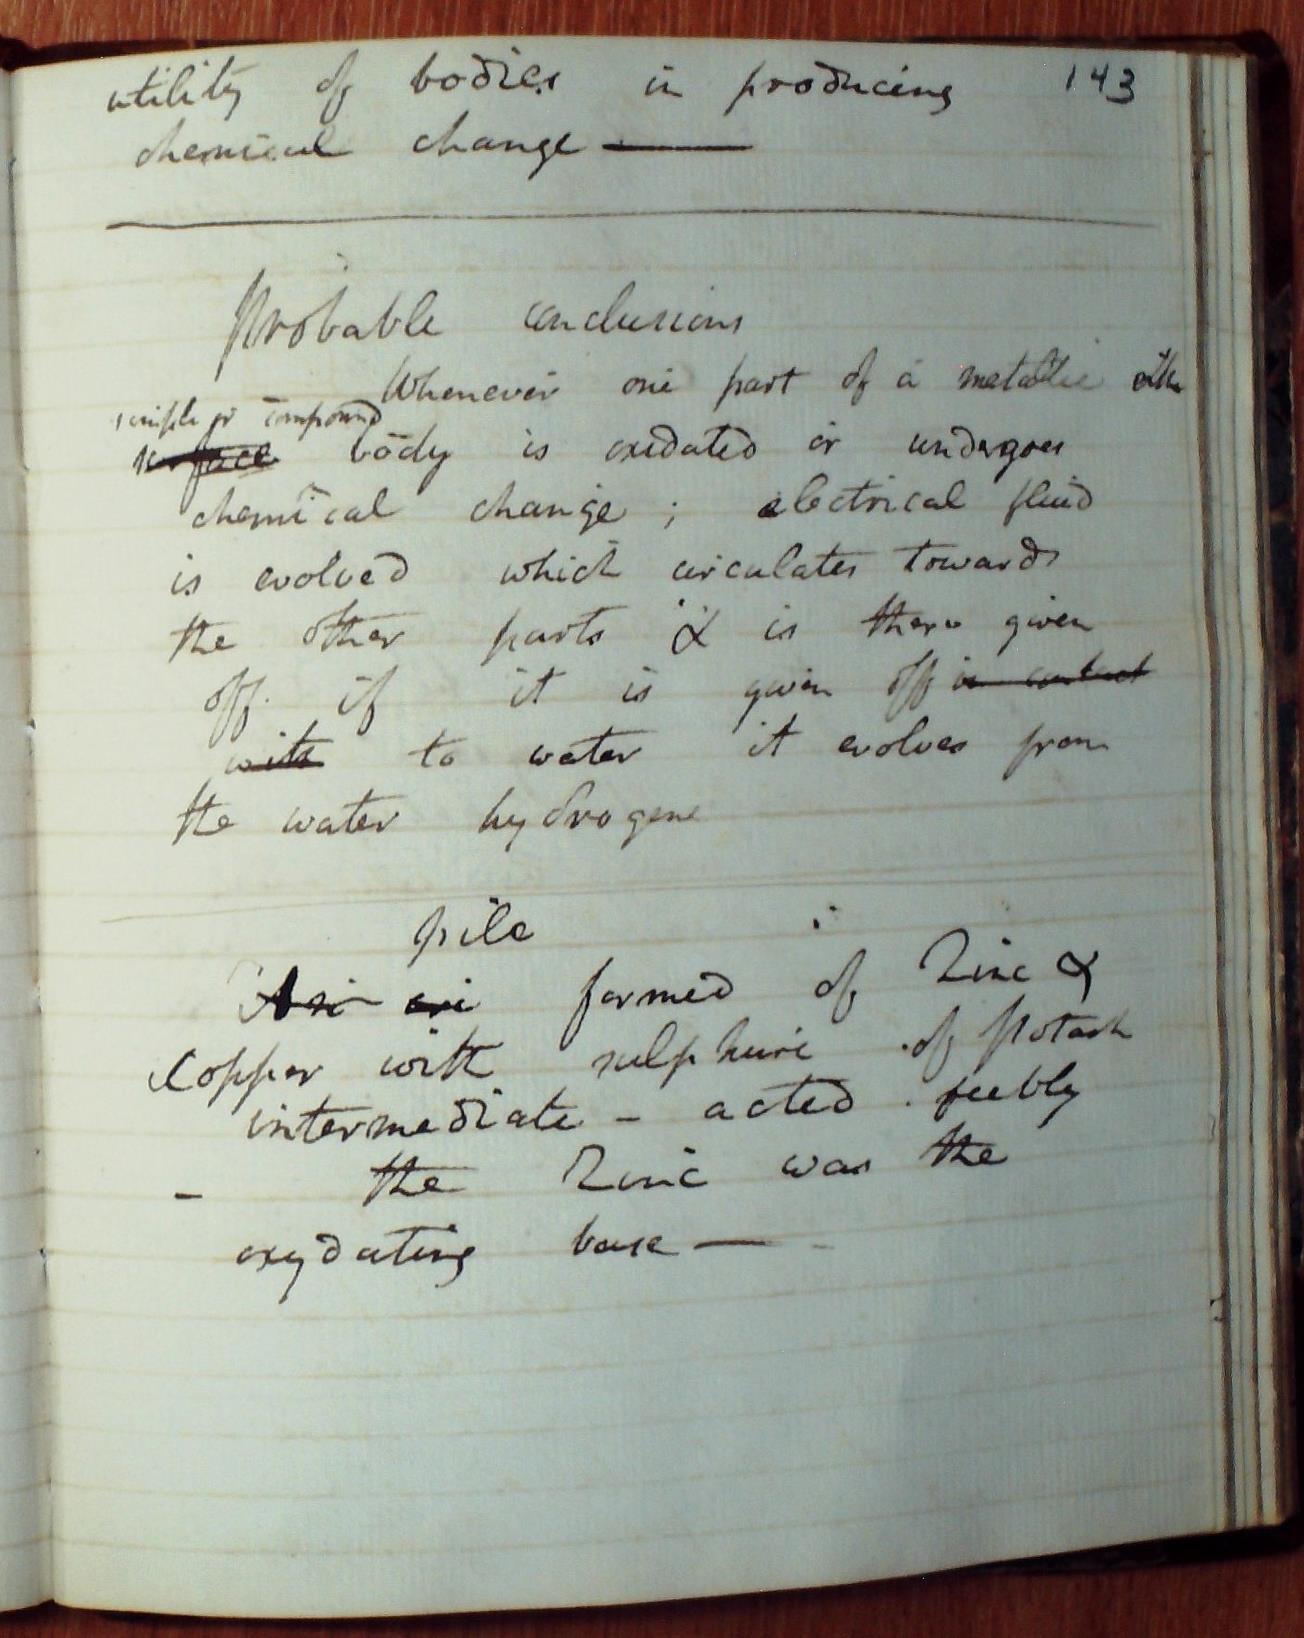 143
utility of bodies in producing
chemical change —
Probable conclusions
Whenever one part of a metallic either
simple or compound
surface body is oxidated or undergoes
chemical change ; electrical fluid
is evolved which circulates towards
the other parts & is there given
off. if it is given off in contact
with to water it evolves from
the water hydrogene
pile
formed of Zinc &
Copper with sulphure of Potash
intermediate - acted feebly
- the Zinc was the
oxydating base —